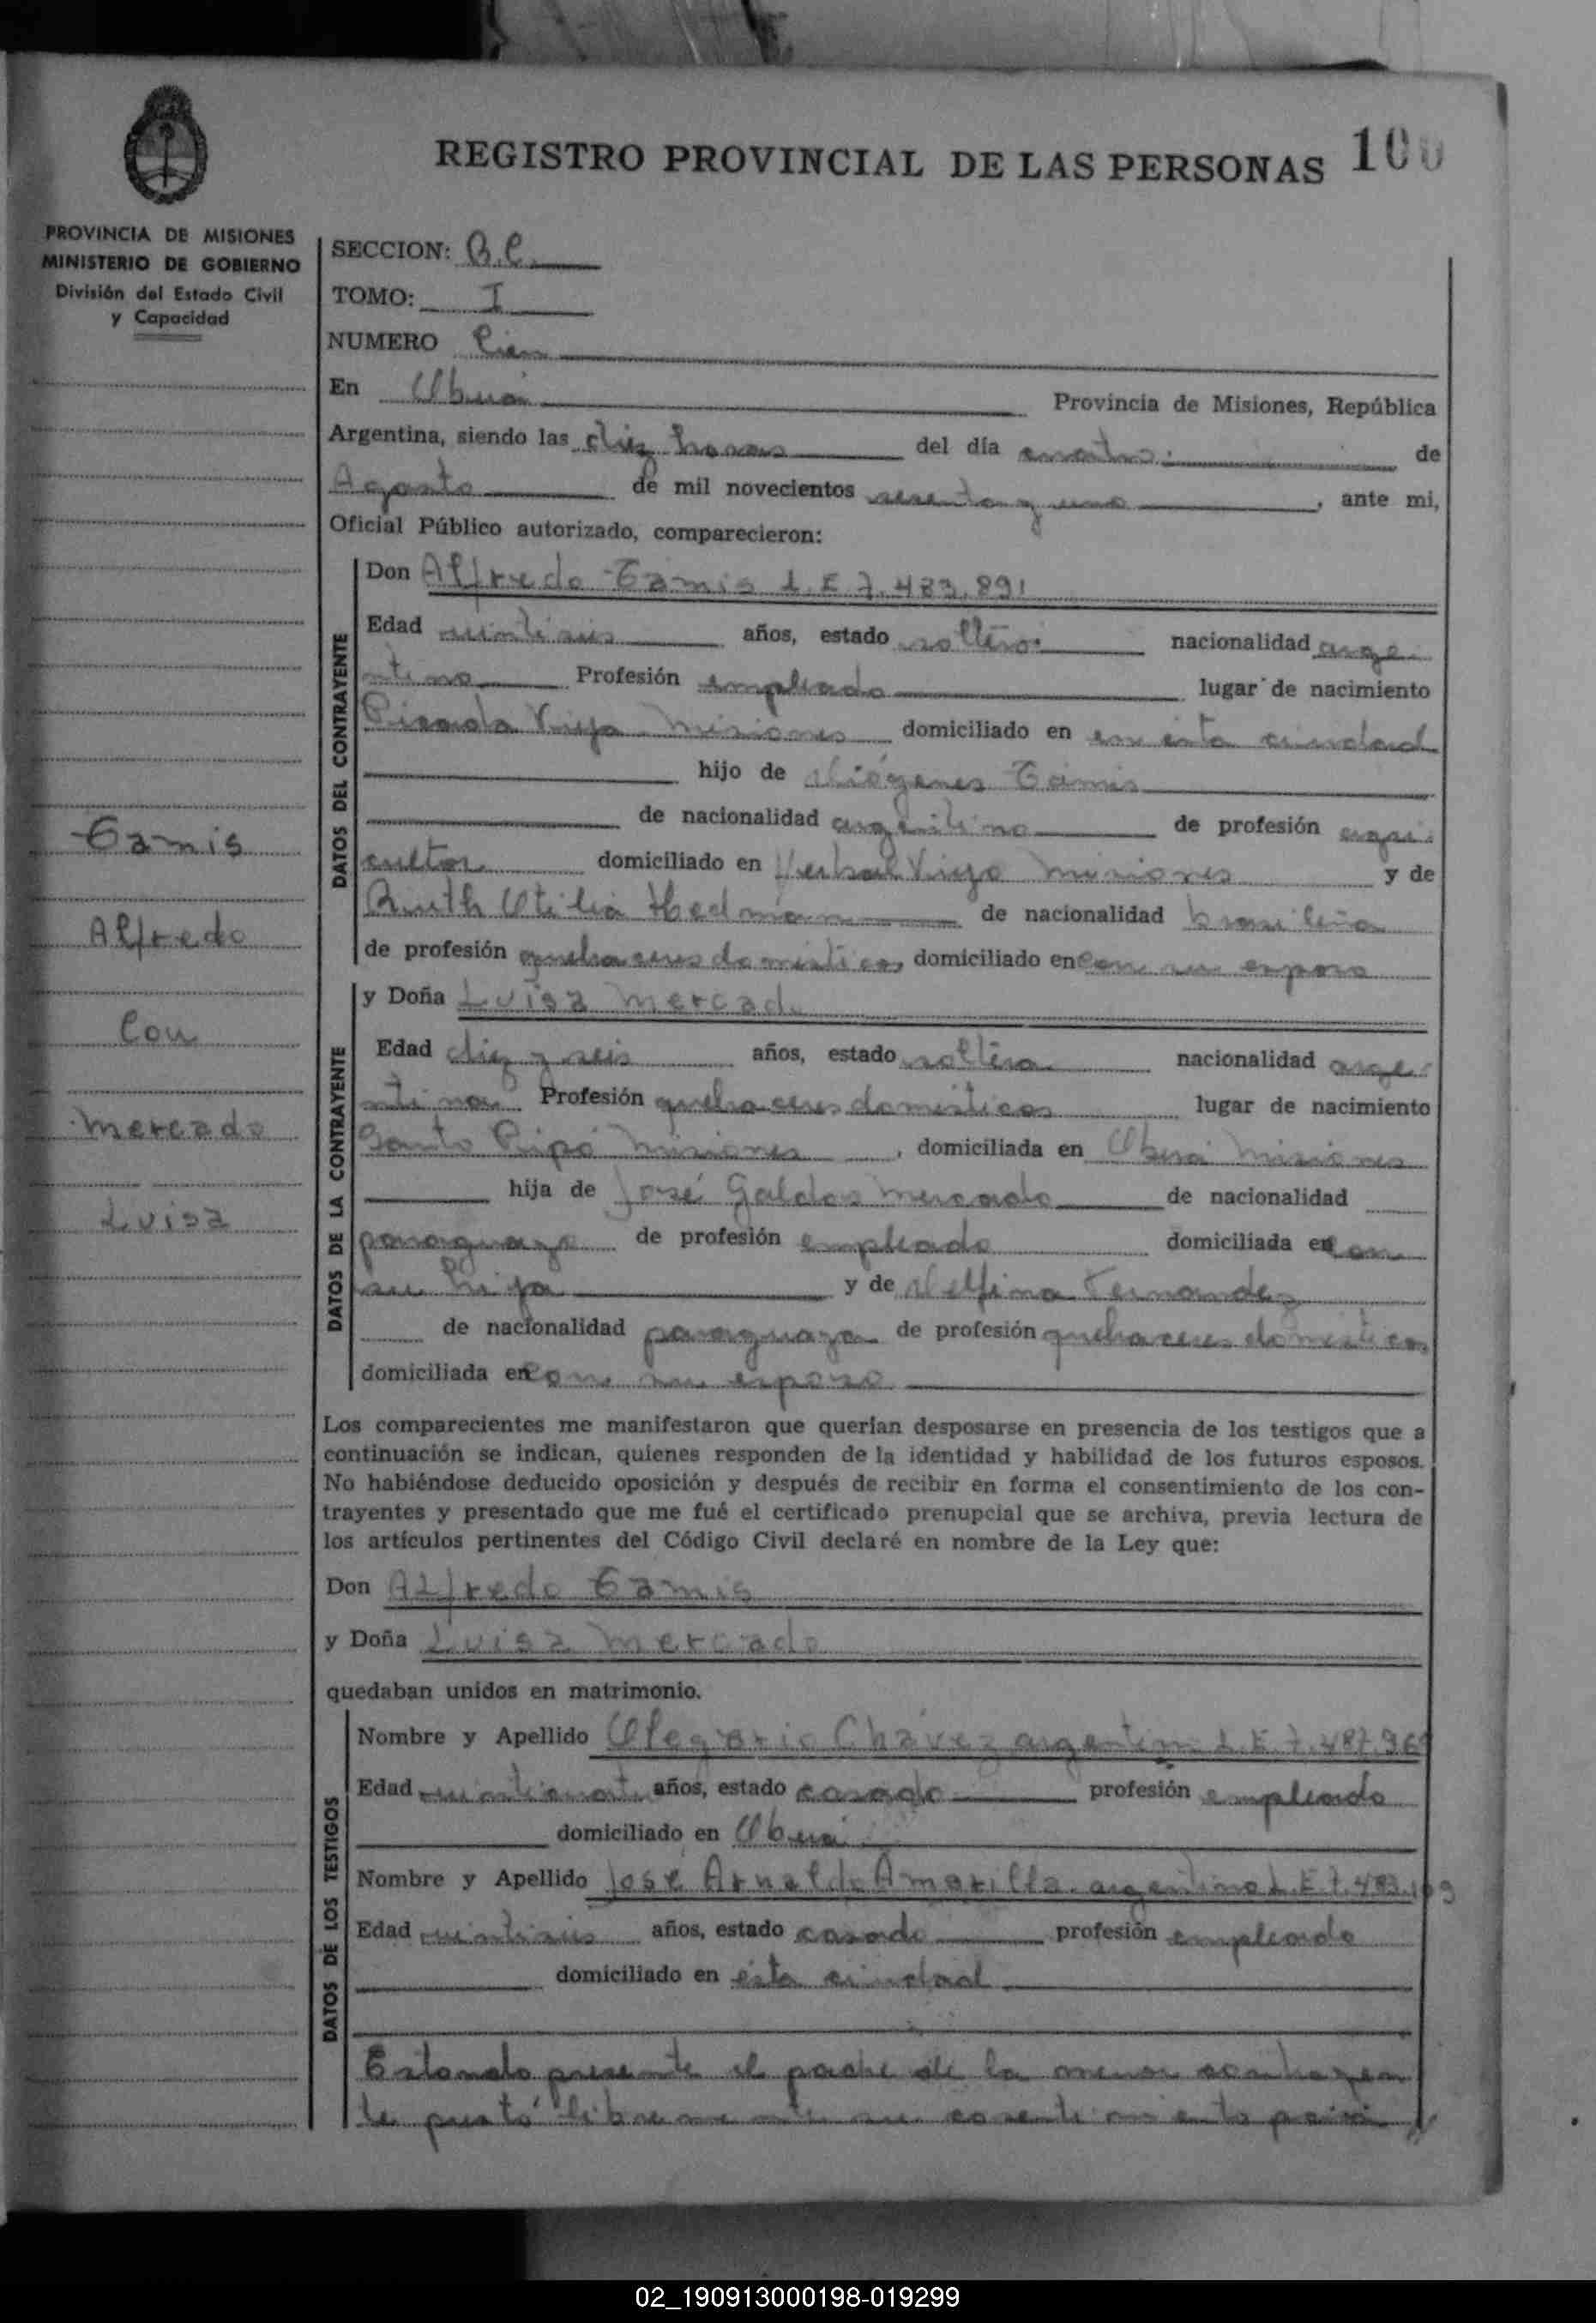 REGISTRO PROVINCIAL DE LAS PERSONAS 100
PROVINCIA DE MISIONES
MINISTERIO DE GOBIERNO
División del Estado Civil
y Capacidad
Gamis
Alfredo
Con
Mercado
Luisa
SECCION: B.C.
TOMO: I
NUMERO Cien
En Oberá Provincia de Misiones, República
Argentina, siendo las diez horas del día cuatro de
Agosto de mil novecientos sesenta y uno, ante mi,
Oficial Público autorizado, comparecieron:
DATOS DEL CONTRAYENTE
Don Alfredo Gamis L.E 7.483.891
Edad veintiseis años, estado soltero nacionalidad arge
ntino Profesión empleado lugar de nacimiento
Picada Vieja Misiones domiciliado en en esta ciudad
hijo de Diógenes Gamis
de nacionalidad argentino de profesión agri
cultor domiciliado en Yerbal Viejo Misiones y de
Ruth Otilia Hedman de nacionalidad brasileña
de profesión quehaceres domesticos domiciliado en con su esposo
DATOS DE LA CONTRAYENTE
y Doña Luisa Mercado
Edad diez y seis años, estado soltera nacionalidad arge
ntina Profesión quehaceres domesticos lugar de nacimiento
Santo Pipó Misiones, domiciliada en Oberá Misiones
hija de José Galdos Mercado de nacionalidad
paraguayo de profesión empleado domiciliada en con
su hija y de Delfina Fernandez
de nacionalidad paraguaya de profesión quehaceres domesticos
domiciliada en con su esposo
Los comparecientes me manifestaron que querían desposarse en presencia de los testigos que a
continuación se indican, quienes responden de la identidad y habilidad de los futuros esposos.
No habiéndose deducido oposición y después de recibir en forma el consentimiento de los con-
trayentes y presentado que me fué el certificado prenupcial que se archiva, previa lectura de
los artículos pertinentes del Código Civil declaré en nombre de la Ley que:
Don Alfredo Gamis
y Doña Luisa Mercado
quedaban unidos en matrimonio.
DATOS DE LOS TESTIGOS
Nombre y Apellido Olegario Chávez argentino L.E 7.487.969
Edad veinticuatro años, estado casado profesión empleado
domiciliado en Oberá
Nombre y Apellido José Arnaldo Amarilla argentino L.E 7.483.109
Edad veintiseis años, estado casado profesión empleado
domiciliado en esta ciudad
Estando presente el padre de la menor contrayen
te prestó libremente su cosentimiento para
02_190913000198-019299